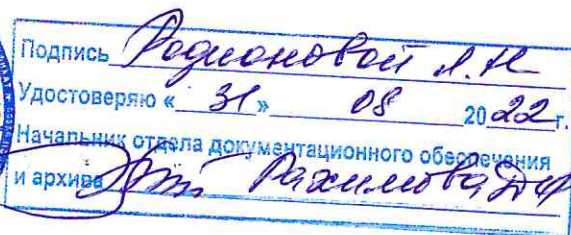 Подпись Родионовой Л.Н
Удостоверяю « 31 » 08 2022 г.
Начальник отдела документационного обеспечения
и архива Рахимова